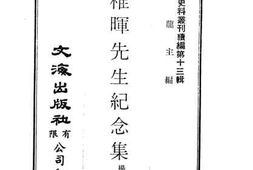 史料叢刊續編第十三輯
龍主編
稚暉先生紀念集
文海出版社
有限
公司